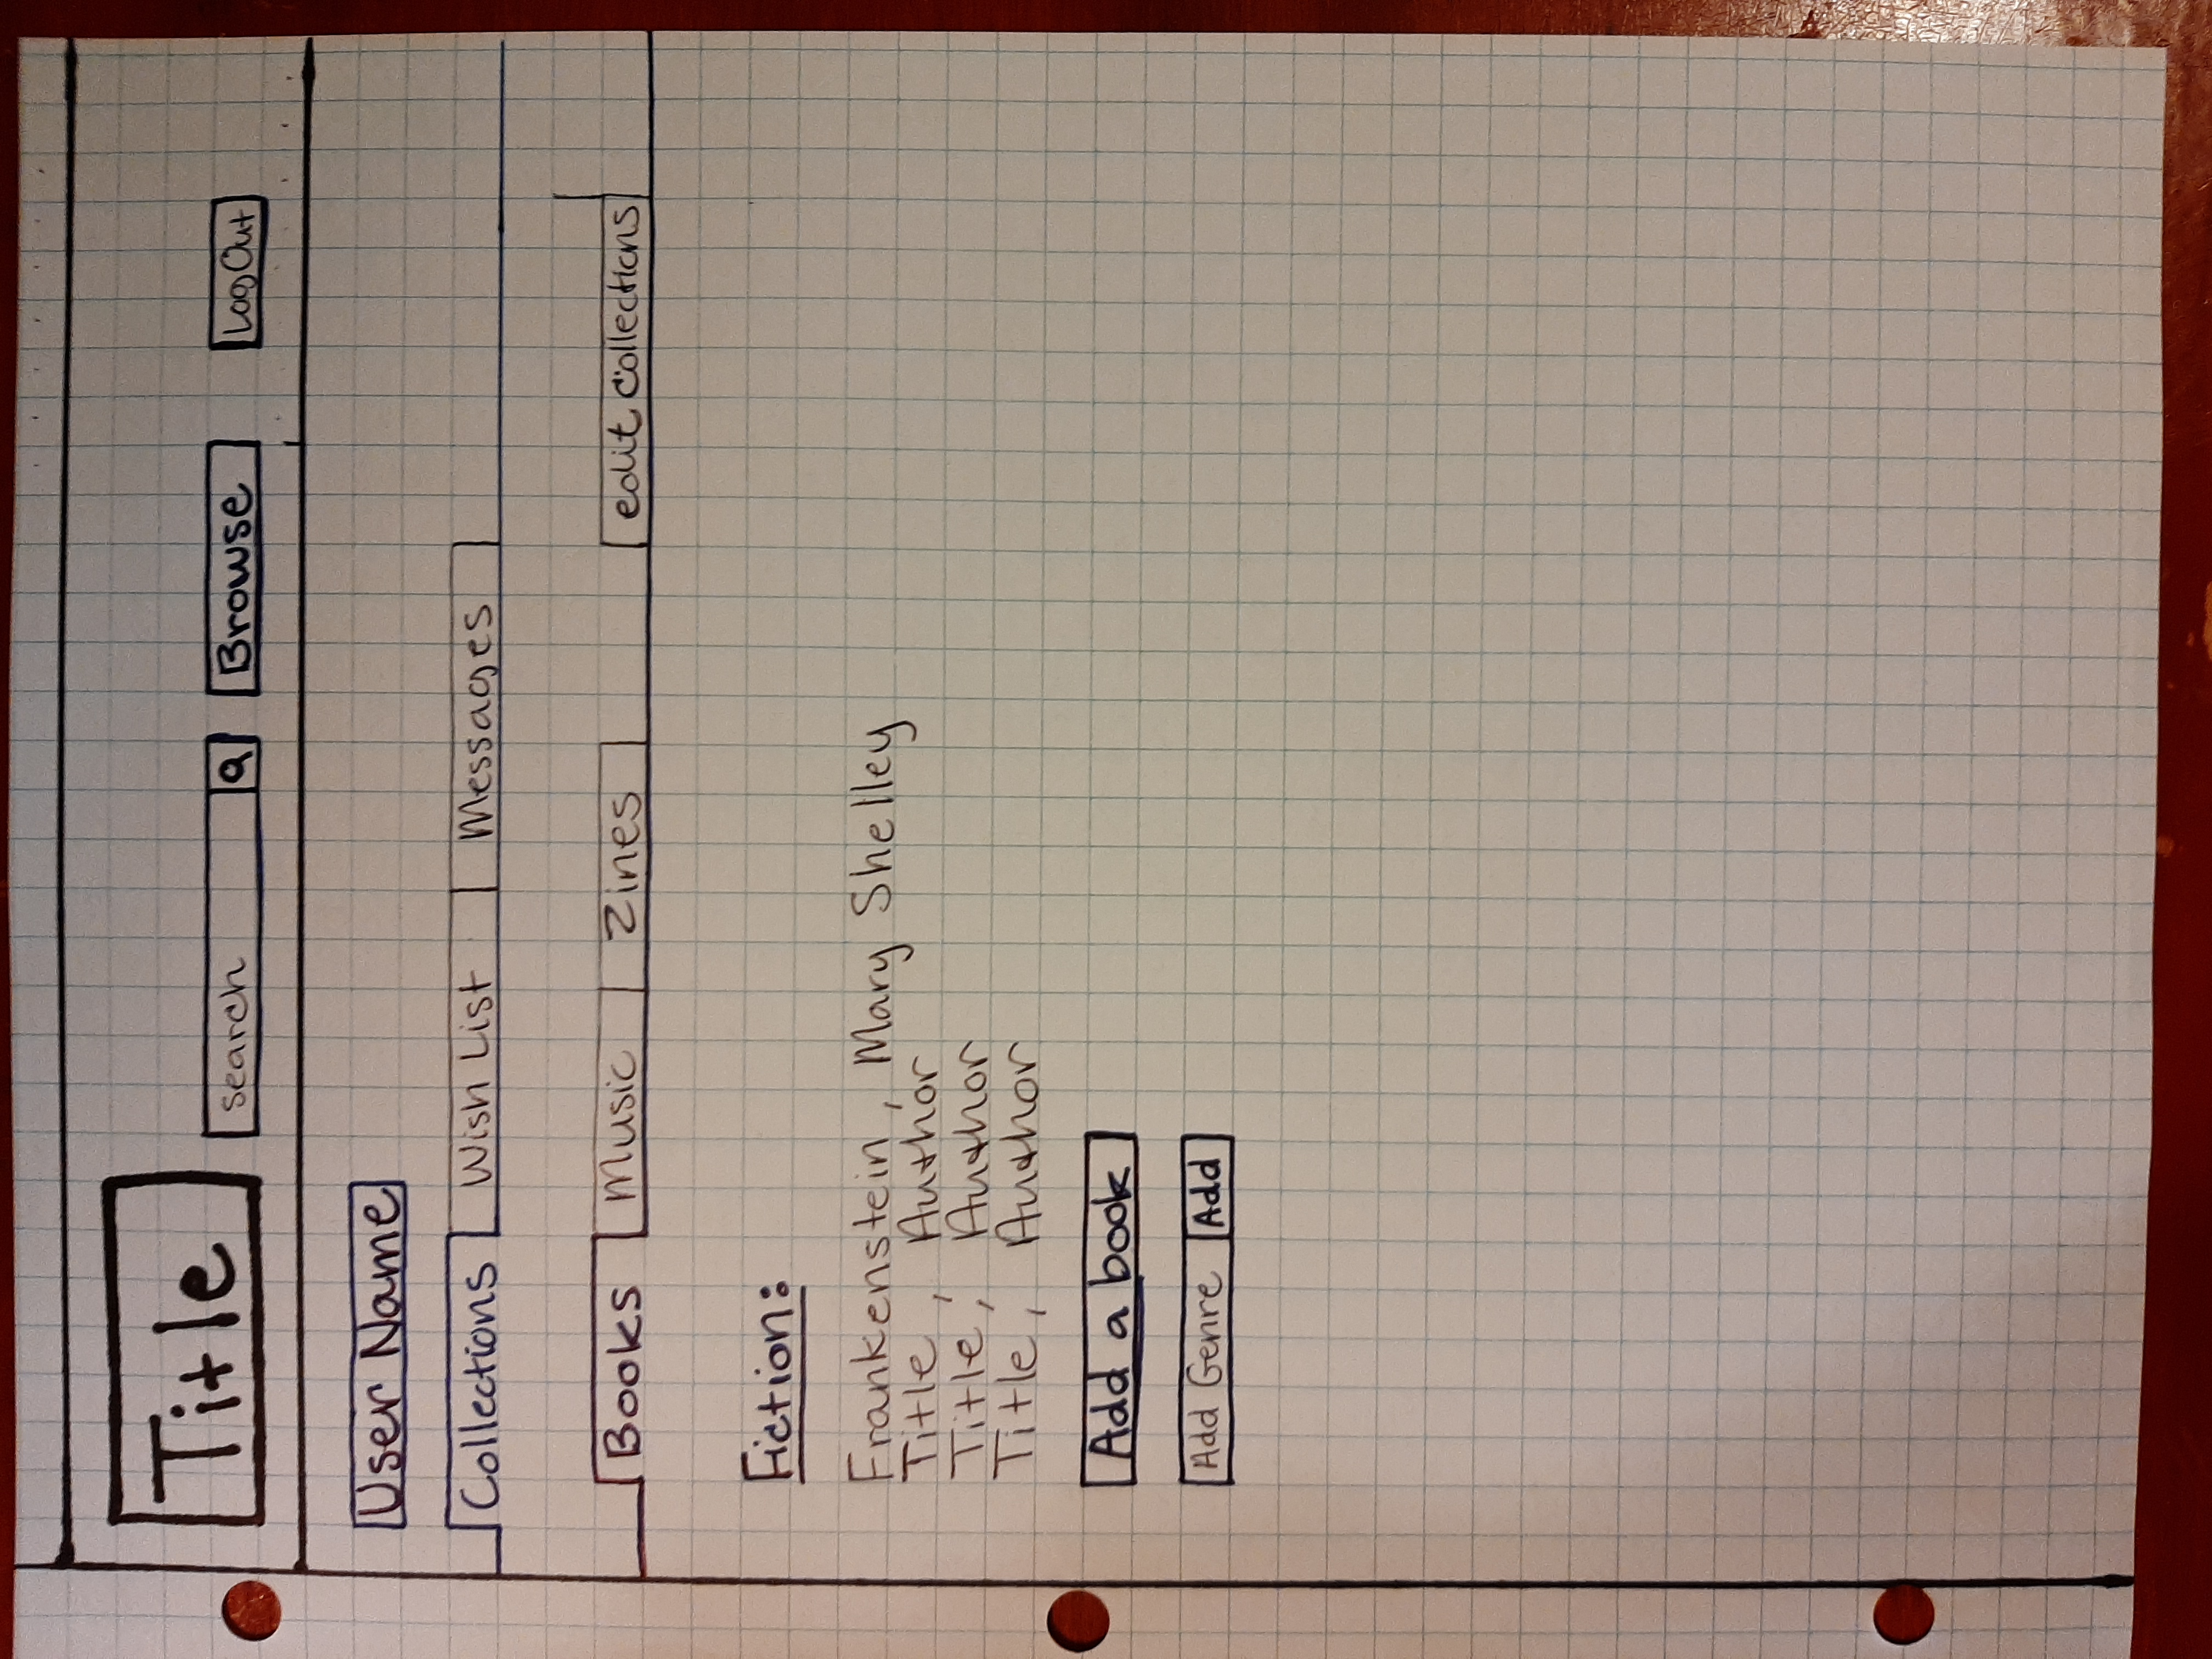 Title
search Browse Log Out
User Name
Collections Wish List Messages
Books Music Zines edit collections
Fiction:
Frankenstein, Mary Shelley
Title, Author
Title, Author
Title, Author
Add a book
Add Genre Add